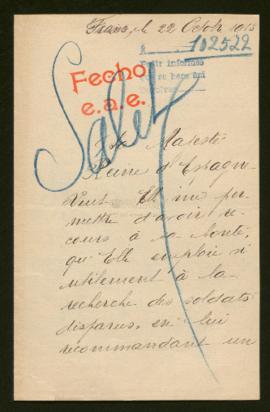 le 22 Octobre 1915
102522
Fecho
e.a.e.
Sa Majesté
Reine d'Espagne
Elle me per-
mettre d'avoir re-
cours à sa bonté,
qu'Elle emploie si
utilement à la
recherche des soldats
disparus, en lui
recommandant un